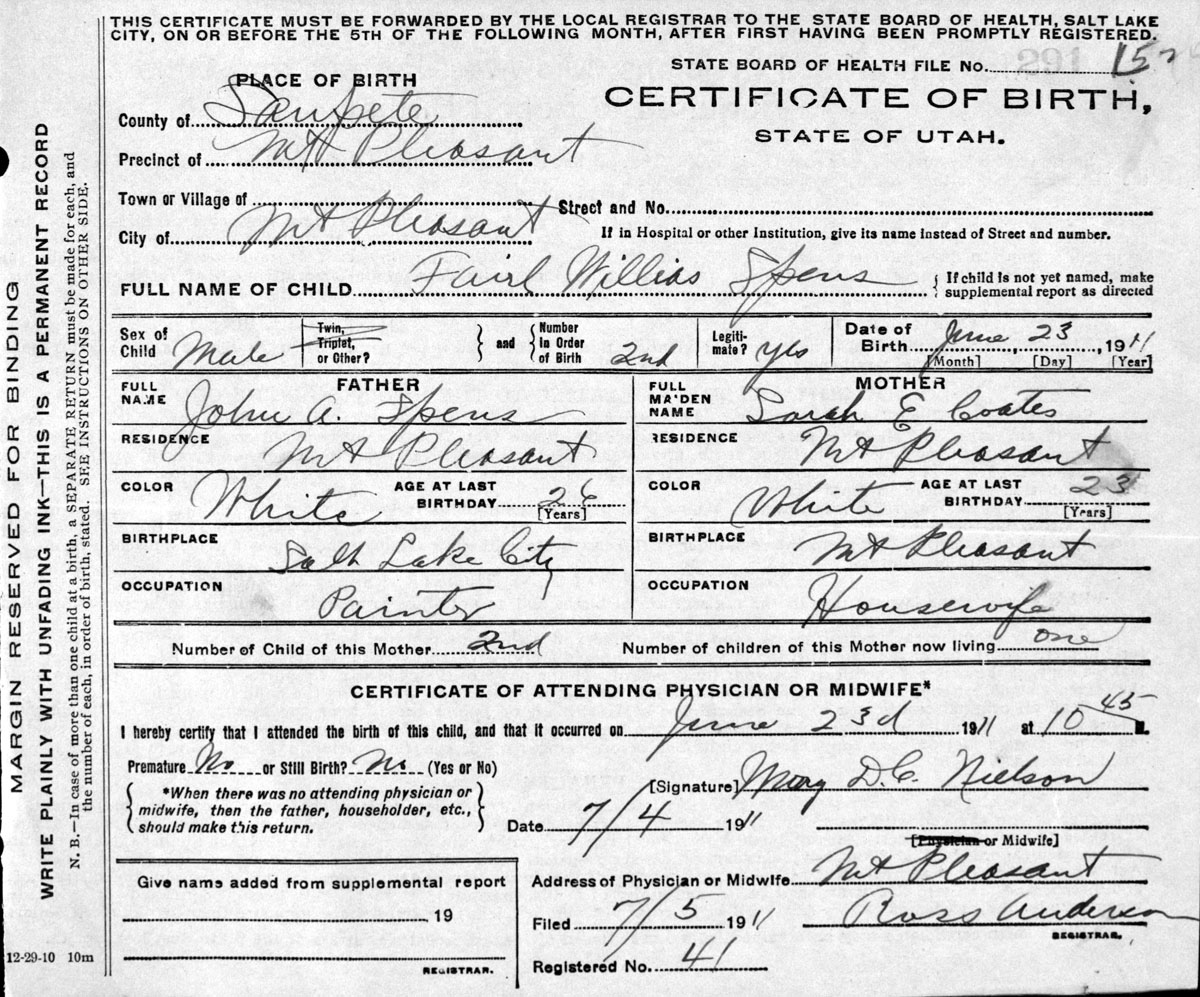 THIS CERTIFICATE MUST BE FORWARDED BY THE LOCAL REGISTRAR TO THE STATE BOARD OF HEALTH, SALT LAKE
CITY, ON OR BEFORE THE 5TH OF THE FOLLOWING MONTH, AFTER FIRST HAVING BEEN PROMPTLY REGISTERED.
STATE BOARD OF HEALTH FILE No.
PLACE OF BIRTH
CERTIFICATE OF BIRTH,
STATE OF UTAH.
County of Sanpete
Precinct of Mt Pleasant
Town or Village of
Street and No.
City of Mt Pleasant
If in Hospital or other Institution, give its name instead of Street and number.
FULL NAME OF CHILD Fairl Willias Spens { If child is not yet named, make supplemental report as directed
Sex of Child Male Twin, Triplet, or Other? } and { Number in Order of Birth 2nd Legiti-mate? yes Date of Birth June 23, 1911
[Month] [Day] [Year]
FATHER
FULL NAME John A. Spens
RESIDENCE Mt Pleasant
COLOR White AGE AT LAST BIRTHDAY 26 [Years]
BIRTHPLACE Salt Lake City
OCCUPATION Painter
MOTHER
FULL MAIDEN NAME Sarah E Coates
RESIDENCE Mt Pleasant
COLOR White AGE AT LAST BIRTHDAY 23 [Years]
BIRTHPLACE Mt Pleasant
OCCUPATION Housewife
Number of Child of this Mother 2nd Number of children of this Mother now living one
CERTIFICATE OF ATTENDING PHYSICIAN OR MIDWIFE*
I hereby certify that I attended the birth of this child, and that it occurred on June 23d 1911 at 10 45 M.
Premature No or Still Birth? No (Yes or No)
{ *When there was no attending physician or
midwife, then the father, householder, etc.,
should make this return. }
[Signature] Mary D.C. Nielson
Date 7/4 1911
[Physician or Midwife]
Address of Physician or Midwife Mt Pleasant
Filed 7/5 1911 Ross Anderson
REGISTRAR.
Registered No. 41
Give name added from supplemental report
19
REGISTRAR.
MARGIN RESERVED FOR BINDING
WRITE PLAINLY WITH UNFADING INK—THIS IS A PERMANENT RECORD
N. B.—In case of more than one child at a birth, a SEPARATE RETURN must be made for each, and
the number of each, in order of birth, stated. SEE INSTRUCTIONS ON OTHER SIDE.
12-29-10 10m